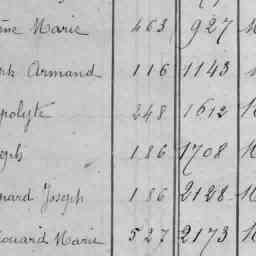 Marie 463 927
Armand 116 1143
polyte 248 1612
seph 186 1708
nard Joseph 186 2128
douard Marie 527 2173